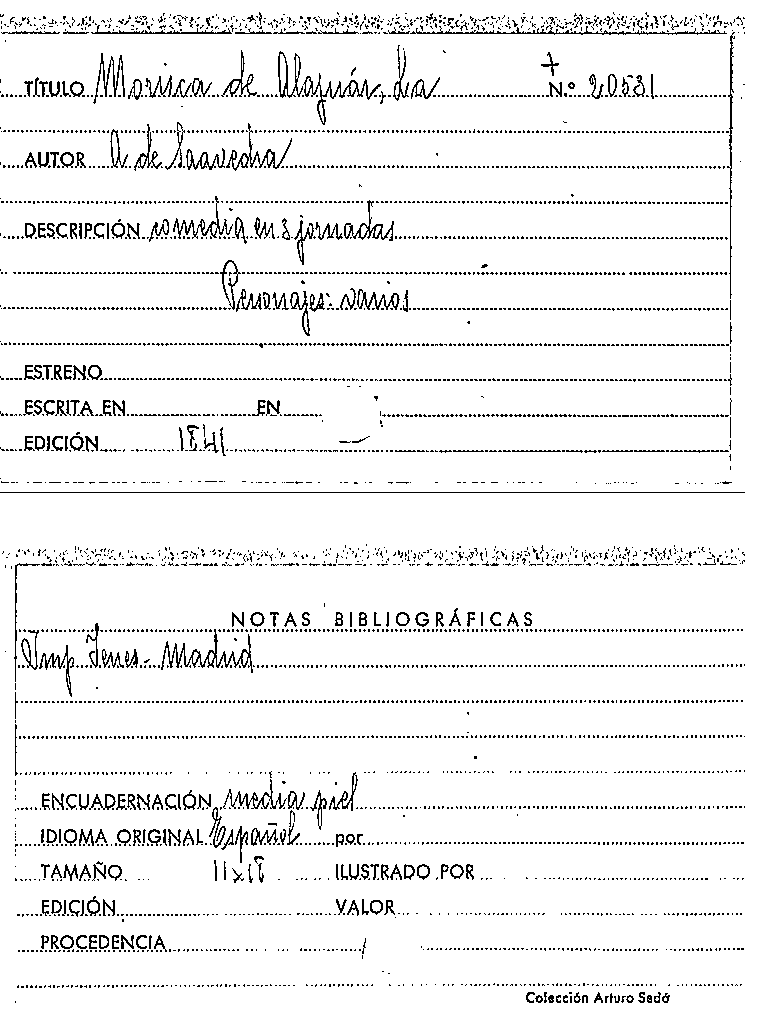 +
TÍTULO Morisca de Alajuár, La N.º 20531
AUTOR A de Saavedra
DESCRIPCIÓN comedia en 3 jornadas
Personajes: varios
ESTRENO
ESCRITA EN EN
EDICIÓN 1841 —
NOTAS BIBLIOGRÁFICAS
Imp Yenes - Madrid
ENCUADERNACIÓN media piel
IDIOMA ORIGINAL Español por
TAMAÑO 11x18 ILUSTRADO POR
EDICIÓN VALOR
PROCEDENCIA
Colección Arturo Sedó